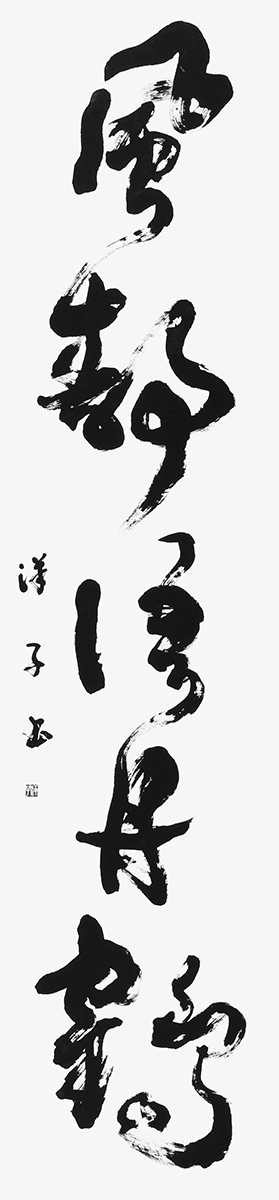 風静丹鶴
洋子書